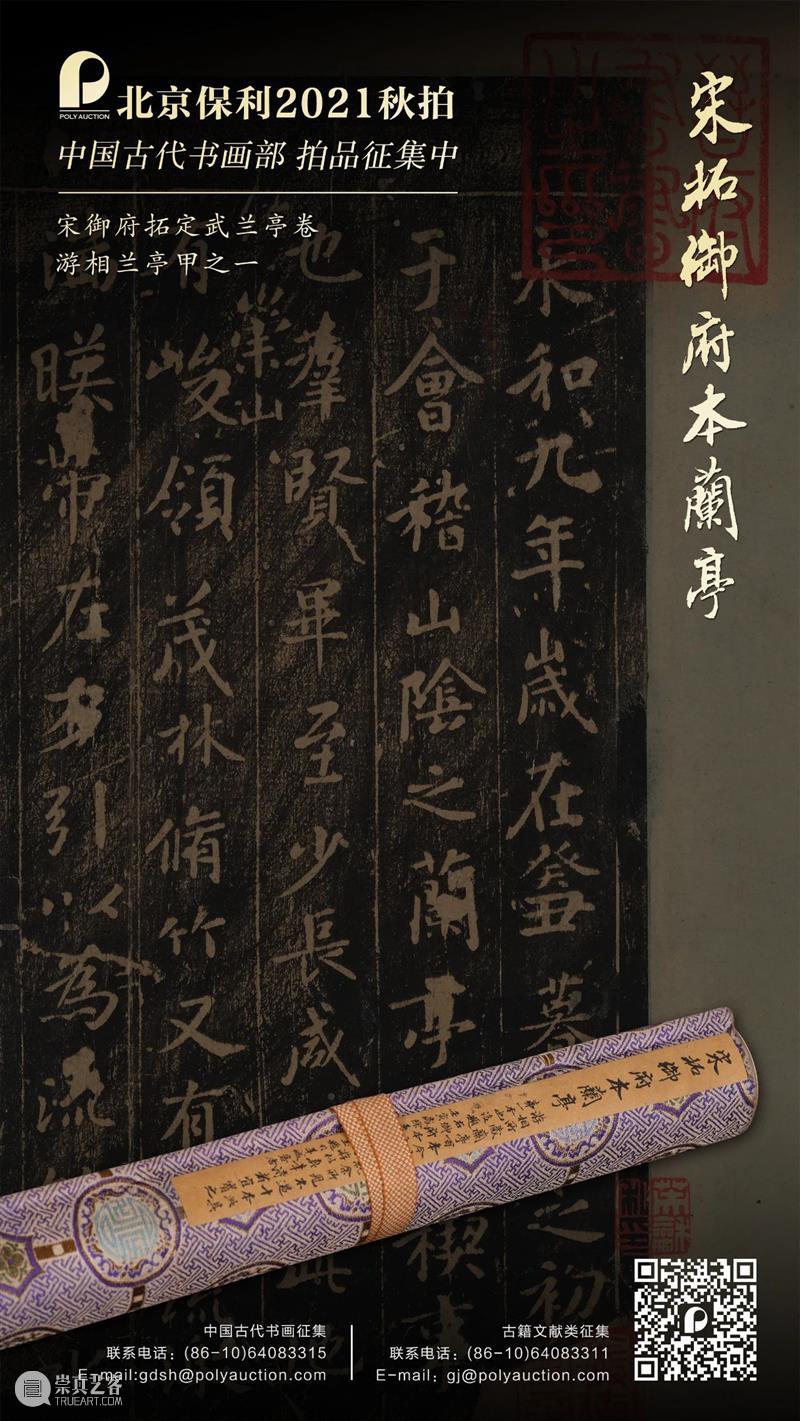 POLY AUCTION
北京保利2021秋拍
中国古代书画部 拍品征集中
宋御府拓定武兰亭卷
游相兰亭甲之一
宋拓御府本蘭亭
永和九年歲在癸丑暮
之初
于會稽山陰之蘭亭
禊事
也羣賢畢至少長咸
此地
有崇山
峻領茂林脩竹又有
暎帶在左右引以為流
宋拓御府本蘭亭
中国古代书画征集
联系电话：(86-10)64083315
E-mail:gdsh@polyauction.com
古籍文献类征集
联系电话：(86-10)64083311
E-mail: gj@polyauction.com
崇真艺客
WWW.TRUEART.COM